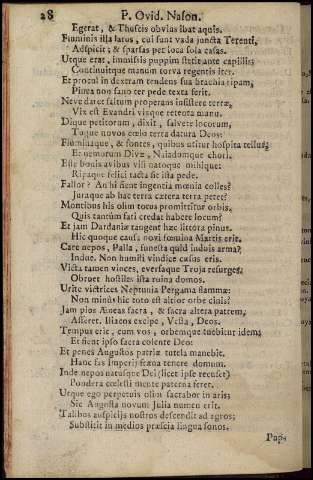 28 P. Ovid. Nason.
Egerat, & Thuscis obvius ibat aquis.
Fluminis illa latus, cui sunt vada juncta Terenti,
Adspicit; & sparsas per loca sola casas.
Utque erat, immissis puppim stetit ante capillis;
Continuitque manum torva regentis iter.
Et procul in dextram tendens sua brachia ripam,
Pinea non sano ter pede texta ferit.
Neve daret saltum properans insistere terræ,
Vix est Evandri visque retenta manu.
Dique petitorum, dixit, salvete locorum,
Tuque novos cœlo terra datura Deos:
Fluminaque, & fontes, quibus utitur hospita tellus;
Et nemorum Divæ, Naiadumque chori.
Este bonis avibus visi natoque mihique:
Ripaque felici tacta sit ista pede.
Fallor? An hi fient ingentia mœnia colles?
Juraque ab hac terra cætera terra petet?
Montibus his olim totus promittitur orbis,
Quis tantum fati credat habere locum?
Et jam Dardaniæ tangent hæc littora pinus.
Hic quoque causa novi fœmina Martis erit.
Care nepos, Palla, funesta quid induis arma?
Indue. Non humili vindice cæsus eris.
Victa tamen vinces, eversaque Troja resurges;
Obruet hostiles ista ruina domos.
Urite victrices Neptunia Pergama flammæ:
Non minus hic toto est altior orbe cinis?
Jam pius Æneas sacra, & sacra altera patrem,
Afferet. Iliacos excipe, Vesta, Deos.
Tempus erit, cum vos, orbemque tuebitur idem;
Et fient ipso sacra colente Deo:
Et penes Augustos patriæ tutela manebit.
Hanc fas Imperij fræna tenere domum.
Inde nepos natusque Dei (licet ipse recuset)
Pondera cœlesti mente paterna feret.
Utque ego perpetuis olim sacrabor in aris;
Sic Augusta novum Julia numen erit.
Talibus auspicijs nostros descendit ad agros;
Substitit in medios præscia lingua sonos.
Pups